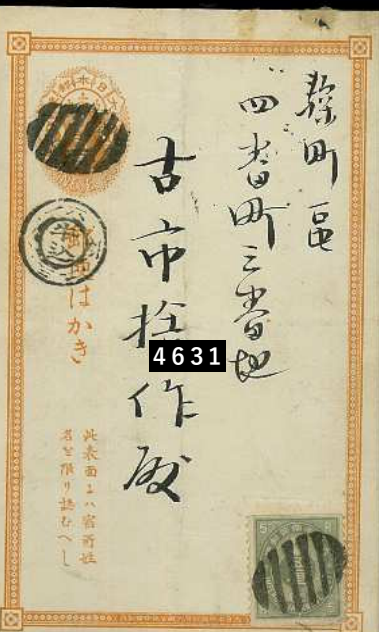 麹町區
四番町三番地
古市捨作殿
4631
郵便はかき
此表面ニハ宿所姓
名ヲ限リ認むへし